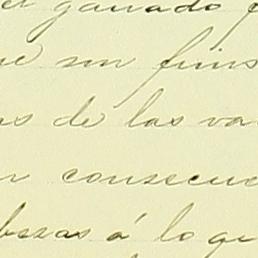 el ganado
que son fins
as de las va
n consecue
bezas á lo qu